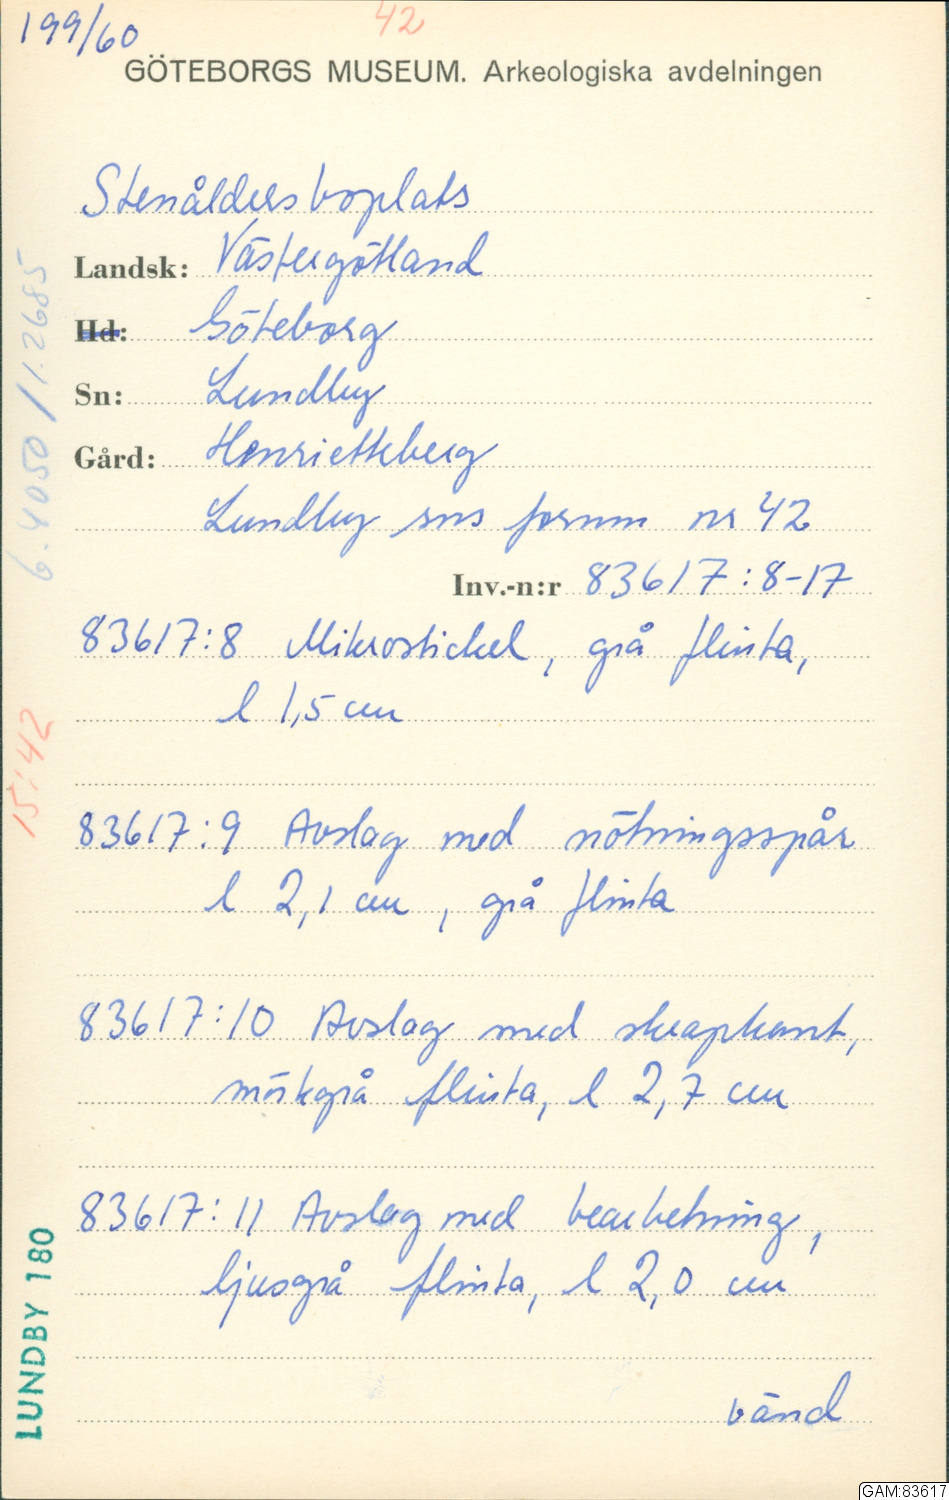 199/60
42
GÖTEBORGS MUSEUM. Arkeologiska avdelningen
Stenåldersboplats
Landsk: Västergötland
Hd: Göteborg
Sn: Lundby
Gård: Henrietteberg
Lundby sns fornm nr 42
Inv.-n:r 83617:8-17
83617:8 Mikrostickel, grå flinta,
l 1,5 cm
83617:9 Avslag med nötningsspår
l 2,1 cm, grå flinta
83617:10 Avslag med skrapkant,
mörkgrå flinta, l 2,7 cm
83617:11 Avslag med bearbetning,
ljusgrå flinta, l 2,0 cm
vänd
6.4050/1.2685
15:42
LUNDBY 180
GAM:83617